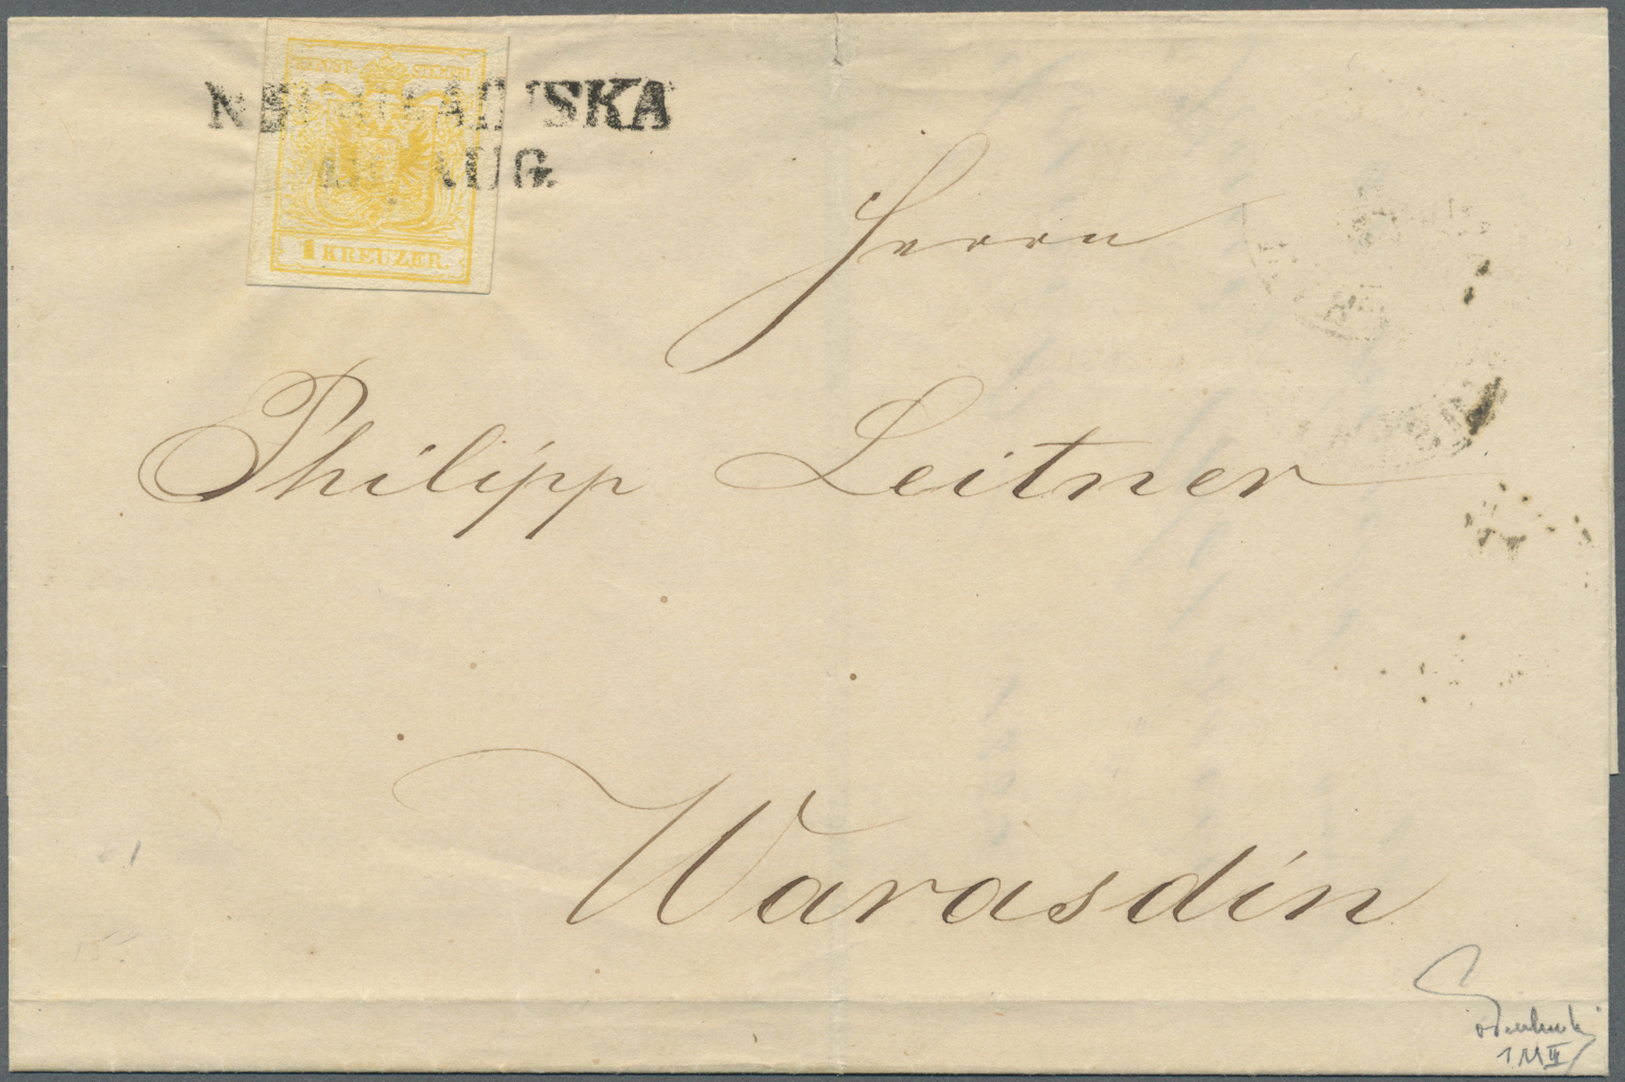 KKPOST-STEMPEL
1 KREUZER.
AUG.
Herrn
Philipp Leitner
Warasdin